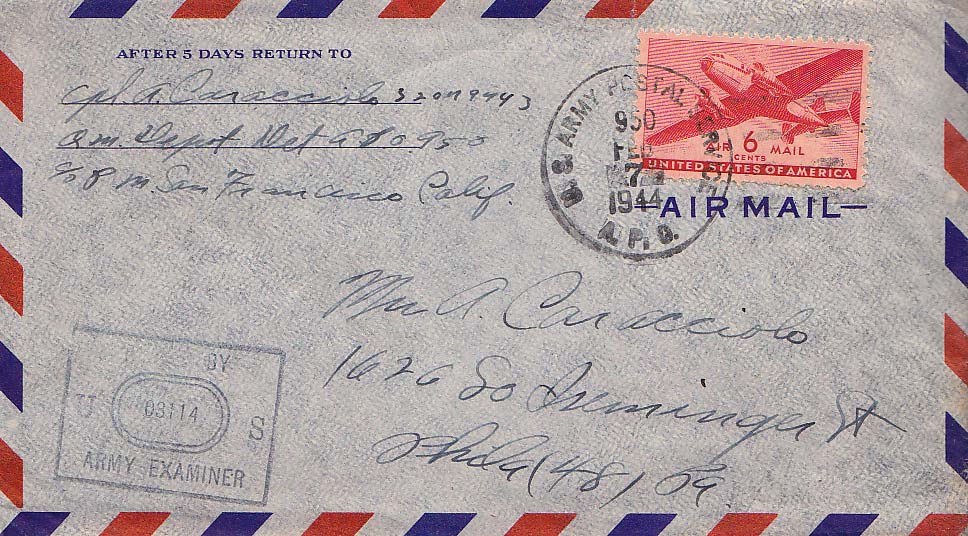 AFTER 5 DAYS RETURN TO
Cpl. A. Caracciolo
Q.M. Depot Det APO 950
c/o P.M. San Francisco Calif.
U.S. ARMY POSTAL SERVICE
950
FEB
7
1944
A.P.O.
AIR 6 MAIL
CENTS
UNITED STATES OF AMERICA
AIR MAIL
Mrs A. Caracciolo
1626 So St
Phila (48) Pa
BY
U 03114 S
ARMY EXAMINER